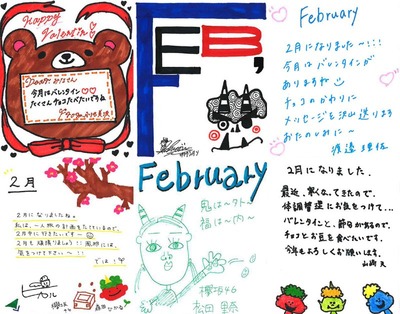 Happy
Valentine
今月はバレンタイン♡♡
たくさんチョコたべたいですね
FEB,
February
2月になりました〜!!!
今月はバレンタインが
ありますね
チョコのかわりに
メッセージを沢山送ります
おたのしみに〜
渡邉理佐
2月
2月になりましたね。
私は、一人旅の計画をたてているので、
2月中に行きたいです〜
2月も頑張りましょう!!風邪には、
気をつけてくださいネ〜!!
では!
February
鬼は〜外〜
福は〜内〜
欅坂46
2月になりました。
最近、寒くなってきたので、
体調管理にお気をつけて...
バレンタインと、節分があるので、
チョコとお豆を食べたいです。
今年もよろしくお願いします。